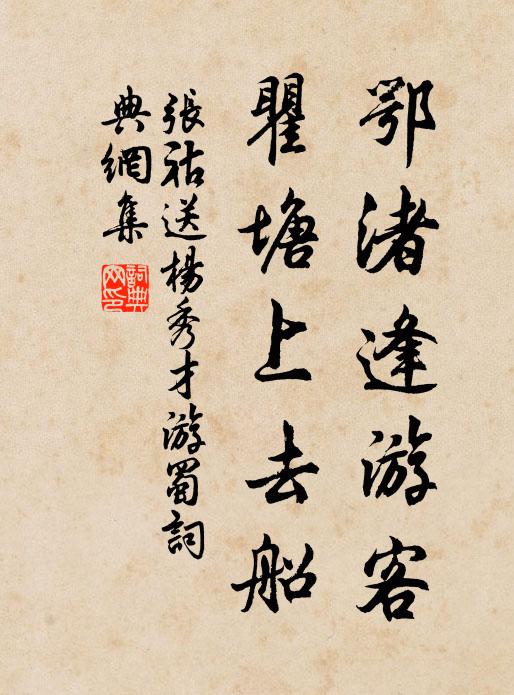 鄂渚逢游客
瞿塘上去船
張祜送楊秀才游蜀詞
典網集
詞典網印